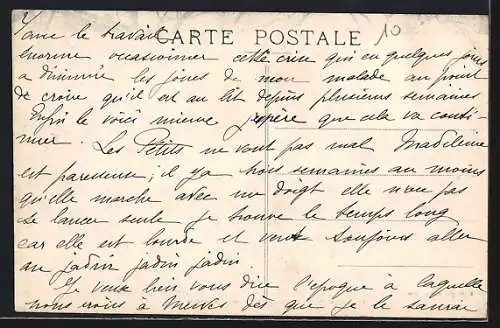 CARTE POSTALE
10
le travail
énorme occasionner cette crise qui en quelques jours
a diminué les forces de mon malade au point
de croire qu'il est au lit depuis plusieurs semaines
Enfin le voici mieux j'espère que cela va conti-
nuer. Les Petits ne vont pas mal Madeleine
est paresseuse, il y a trois semaines au moins
qu'elle marche avec un doigt elle n'ose pas
se lancer seule je trouve le temps long
car elle est lourde et veut toujours aller
au jardin jardin jardin
Je veux bien vous dire l'époque à laquelle
nous irons à dès que je le saurai